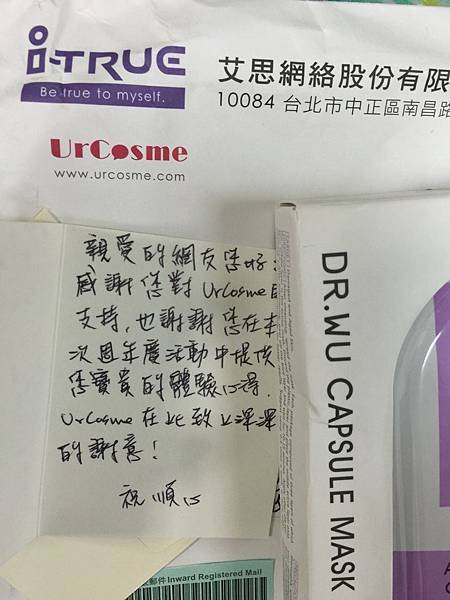 i-TRUE
Be true to myself.
艾思網絡股份有限
10084 台北市中正區南昌路
UrCosme
www.urcosme.com
親愛的網友您好
感謝您對 UrCosme
支持，也謝謝您在本
次週年慶活動中提供
您寶貴的體驗心得．
UrCosme 在此致上深深
的謝意！
祝 順心
DR.WU CAPSULE MASK
郵件 Inward Registered Mail